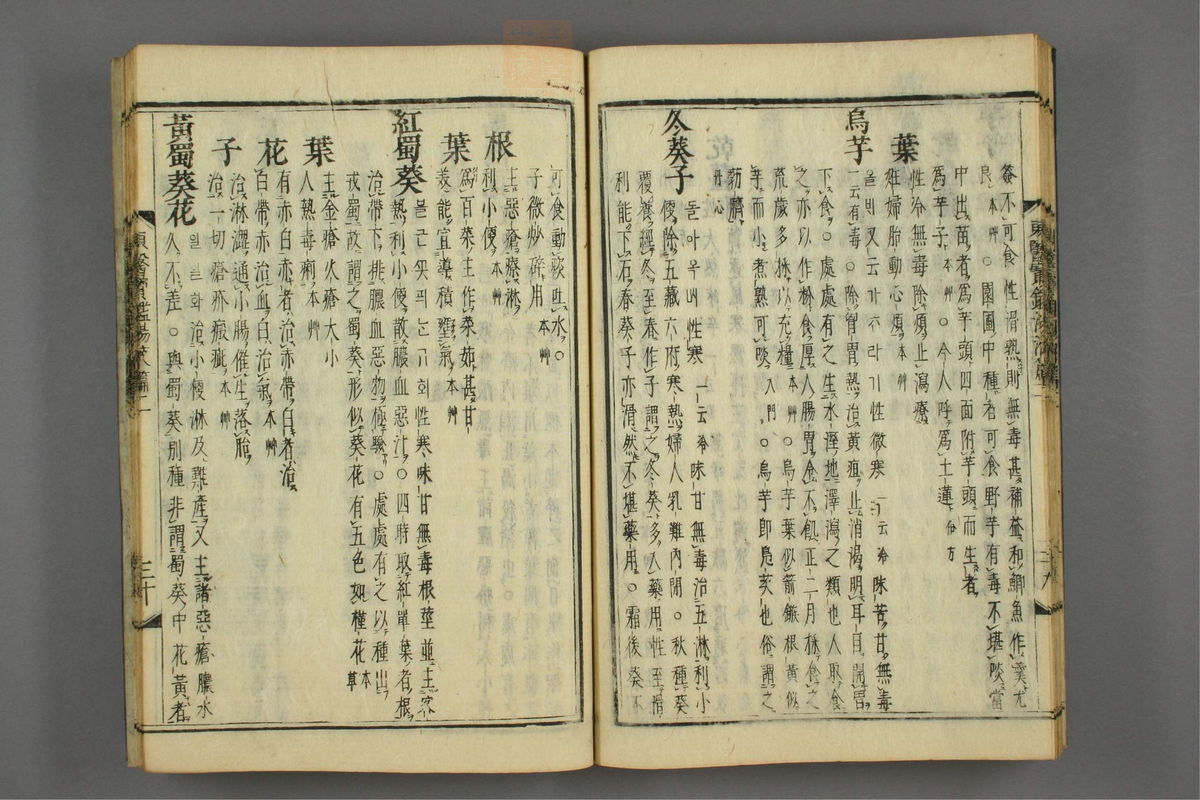 薟不可食性滑熟則無毒甚補益和鯽魚作羹尤
良本艸○園圃中種者可食野芋有毒不堪啖當
中出苗者爲芋頭四面附芋頭而生者
爲芋子本艸○今人呼爲土蓮俗方
葉 性冷無毒除煩止瀉療
姙婦胎動心煩本艸
烏芋 올미又云가ᄎ라기性微寒一云冷味苦甘無毒
一云有毒○除胃熱治黃疸止消渴明耳目開胃
下食○處處有之生水濕地澤瀉之類也人取食
之亦以作粉食厚人腸胃令不飢正二月採食之
荒歲多採以充糧本艸○烏芋葉似箭鏃根黃似
芋而小煮熟可啖入門○烏芋卽鳧茨也俗謂之
葧臍
丹心
冬葵子 돌아옥ᄡᅵ性寒一云冷味甘無毒治五淋利小
便除五藏六府寒熱婦人乳難內閉○秋種葵
覆養經冬至春作子謂之冬葵多入藥用性至滑
利能下石春葵子亦滑然不堪藥用○霜後葵不
可食動痰吐水○
子微炒碎用本艸
根 主惡瘡療淋
利小便本艸
葉 爲百菜主作菜茹甚甘
美能宣導積壅氣本艸
紅蜀葵 블근곳픠ᄂᆞᆫ규화性寒味甘無毒根莖並主客
熱利小便散膿血惡汁○四時取紅單葉者根
治帶下排膿血惡物極驗○處處有之以種出
戎蜀故謂之蜀葵形似葵花有五色如槿花本草
葉 主金瘡火瘡大小
人熱毒痢本艸
花 有赤白赤者治赤帶白者治
白帶赤治血白治氣本艸
子 治淋澁通小腸催生落胎
治一切瘡疥瘢疵本艸
黃蜀葵花 일일화治小便淋及難產又主諸惡瘡膿水
久不差○與蜀葵別種非謂蜀葵中花黃者
東醫寶鑑湯液篇二
三十